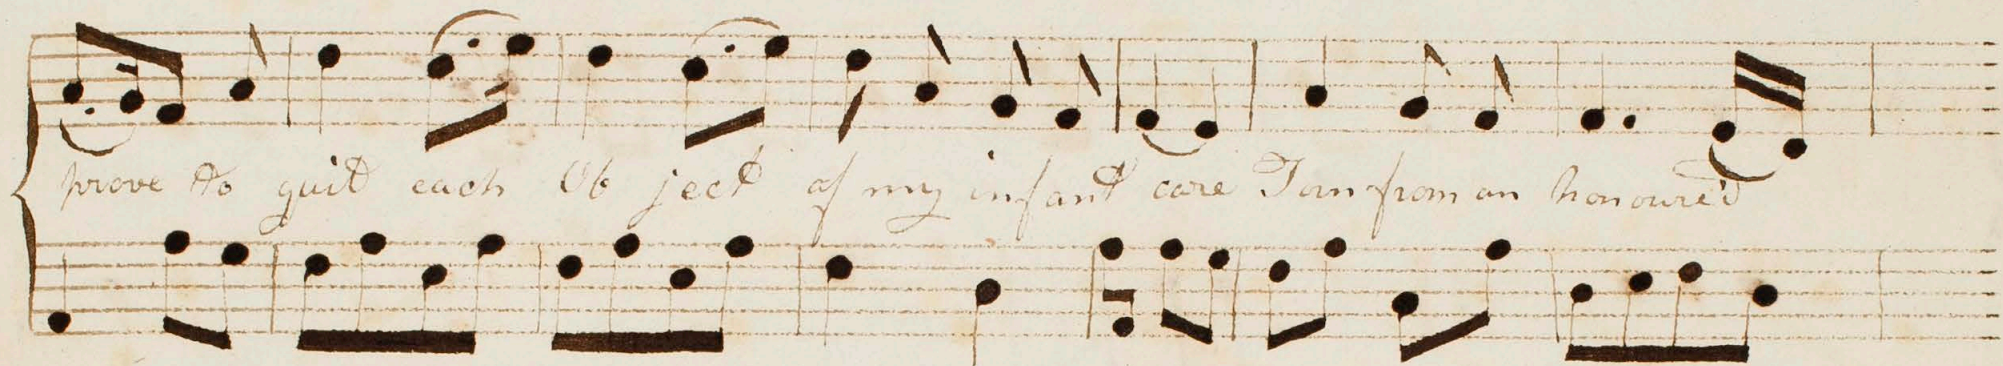 prove to quit each Ob ject of my infant care Torn from an honoure'd